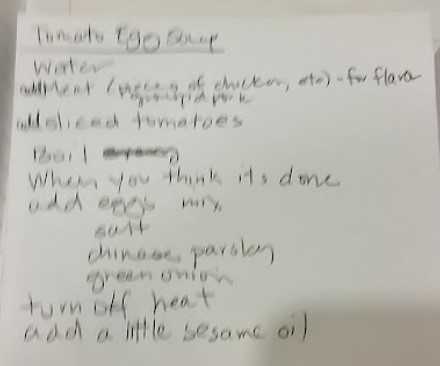 Tomato Egg Soup
Water
add Meat (pieces of chicken, etc) - for flavor
ground pork
add sliced tomatoes
Boil
When you think its done
add eggs mix
salt
chinese parsley
green onion
turn off heat
add a little sesame oil